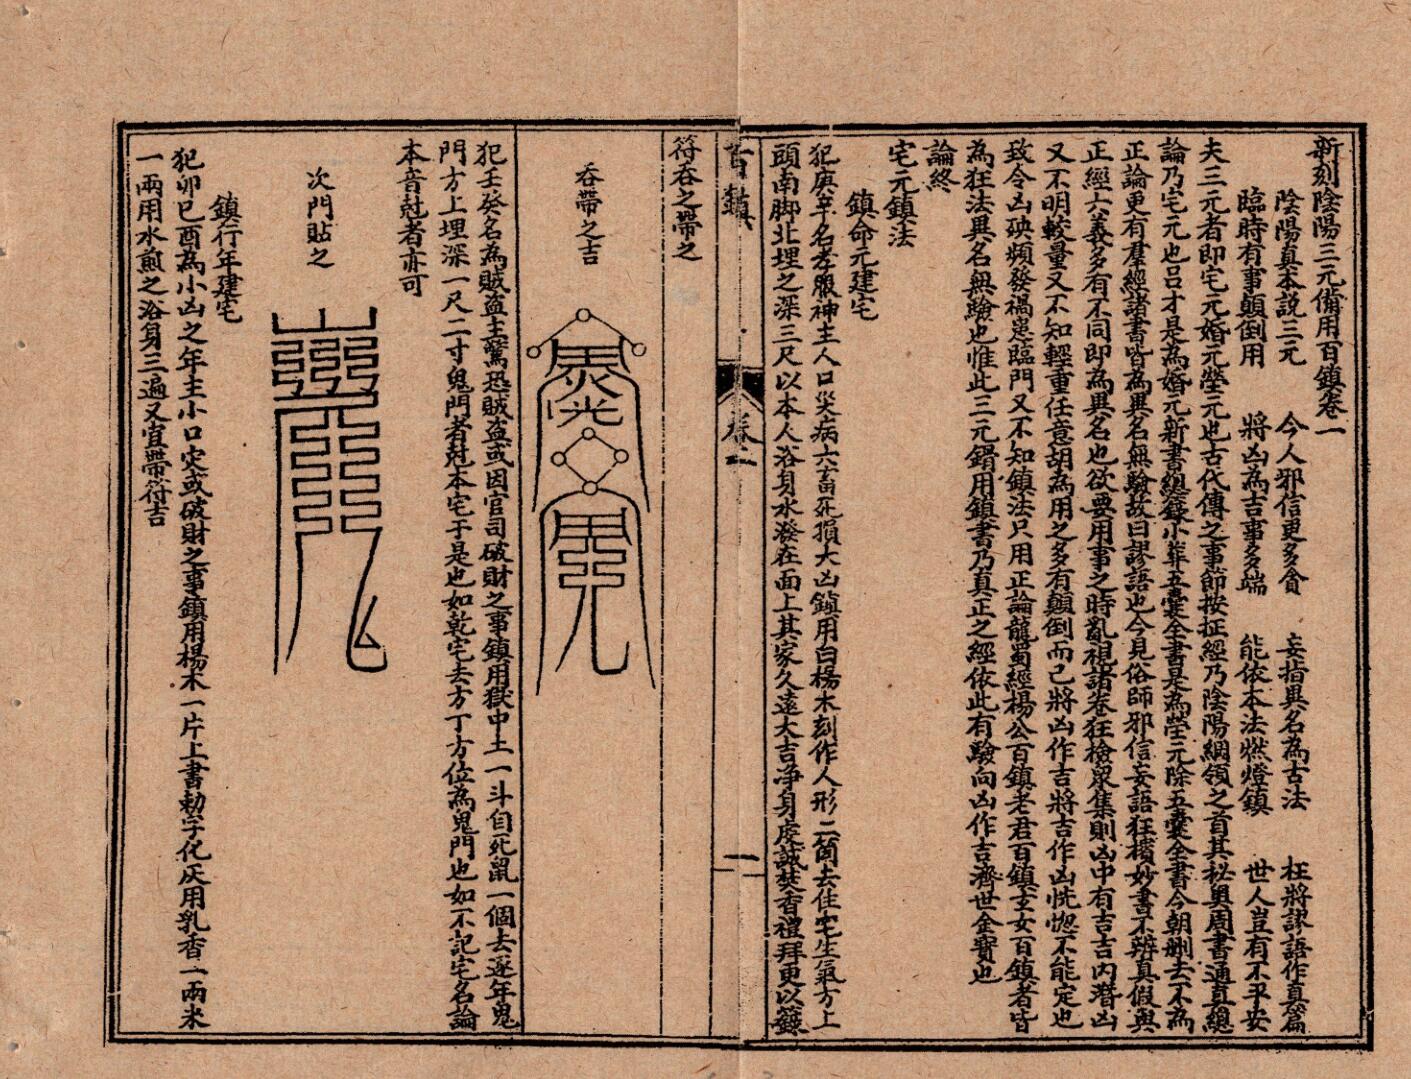 新刻陰陽三元備用百鎮卷一
陰陽真本說三元　今人邪信更多貪　妄指異名為古法　枉將謬語作真篇
臨時有事顛倒用　將凶為吉事多端　能依本法燃燈鎮　世人豈有不平安
夫三元者即宅元婚元塋元也古代傳之事節按征經乃陰陽綱領之首其秘奧周書通真總
論乃宅元也呂才是為婚元新書總錄小葬五囊全書是為塋元除五囊全書今朝刪去不為
正論更有羣經諸書皆為異名無驗故曰謬語也今見俗師邪信妄語狂擯妙書不辨真假與
正經六義多有不同即為異名也欲要用事之時亂視諸卷狂檢眾集則凶中有吉吉內潛凶
又不明較量又不知輕重任意胡為用之多有顛倒而已將凶作吉將吉作凶恍惚不能定也
致令凶殃頻發禍患臨門又不知鎮法只用正論龍蜀經楊公百鎮老君百鎮玄女百鎮者皆
為狂法異名無驗也惟此三元鎮書乃真正之經依此有驗向凶作吉濟世金寶也
論終
宅元鎮法
鎮命元建宅
犯庚辛名孝服神主人口災病六畜死損大凶鎮用白楊木刻作人形二箇去住宅生氣方上
頭南脚北埋之深三尺以本人浴身水潑在面上其家久遠大吉淨身虔誠焚香禮拜更以籙
百鎮
卷一
一
符吞之帶之
吞帶之吉
犯壬癸名為賊盜主驚恐賊盜或因官司破財之事鎮用獄中土一斗自死鼠一個去遂年鬼
門方上埋深一尺二寸鬼門者尅本宅于是也如乾宅去方丁方位為鬼門也如不記宅名論
本音尅者亦可
次門貼之
鎮行年建宅
犯卯巳酉為小凶之年主小口災或破財之事鎮用楊木一片上書勅字化灰用乳香二兩米
一兩用水煎之浴身三遍又宜帶符吉